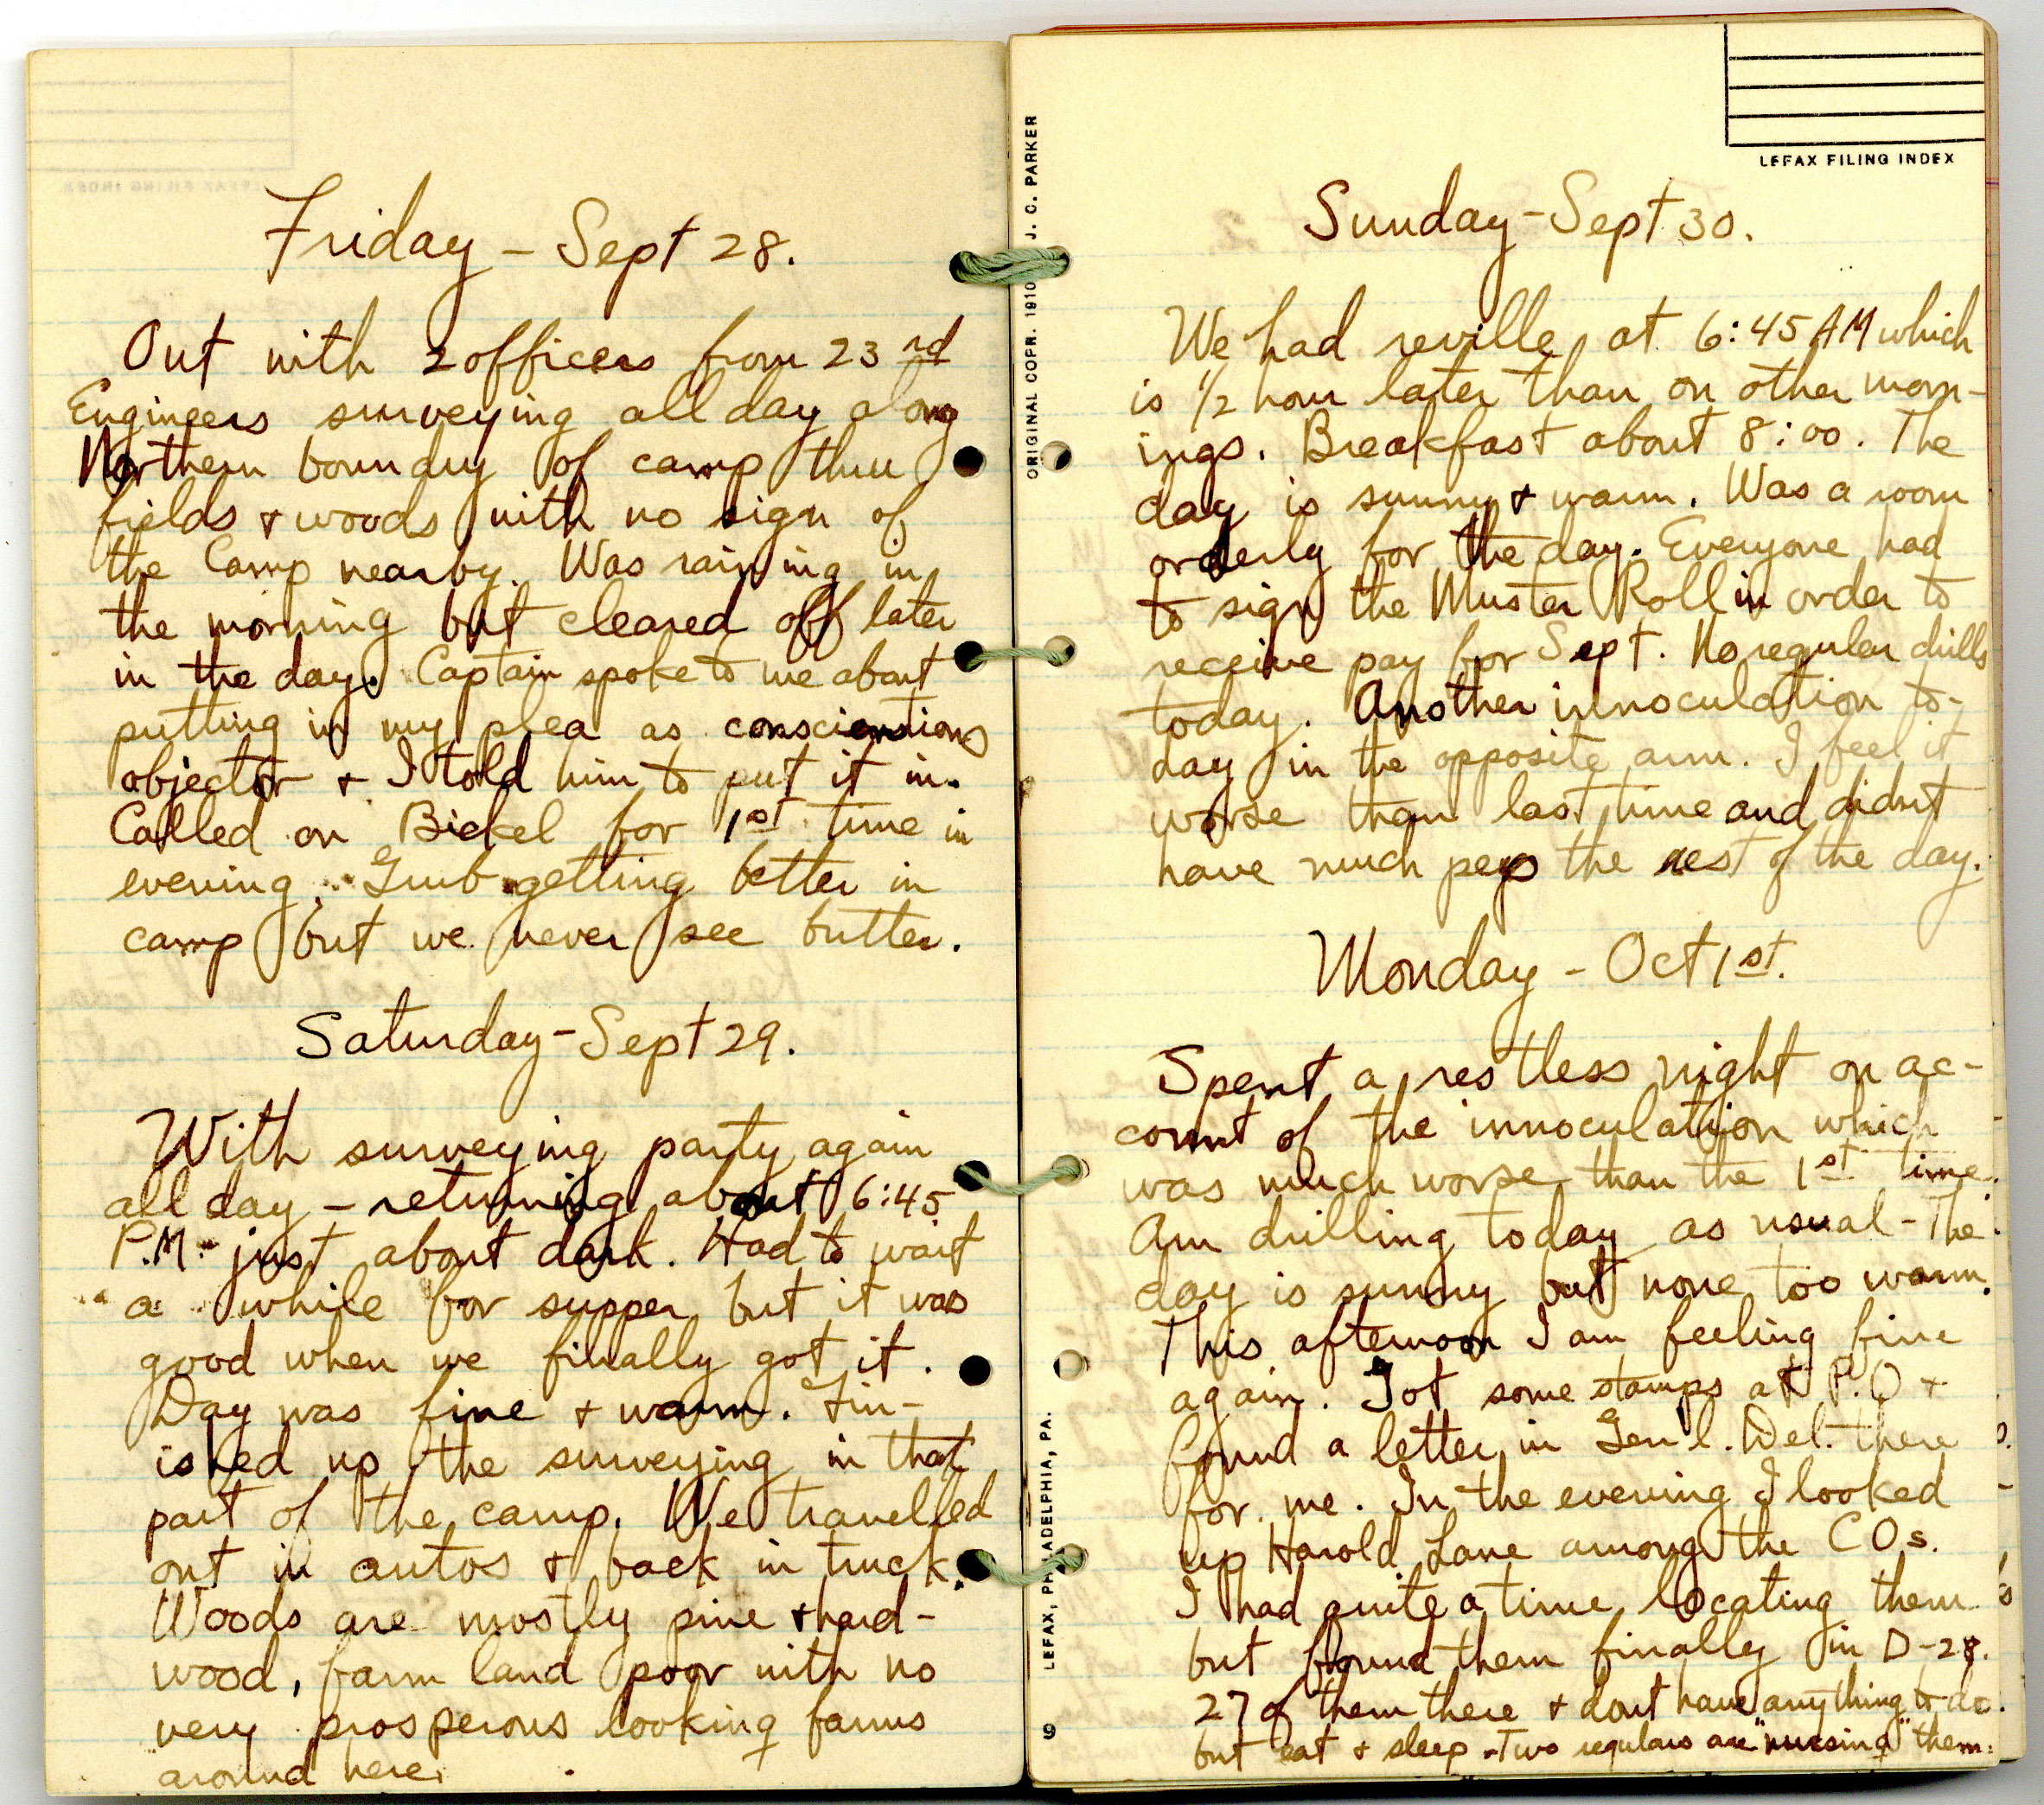 Friday - Sept 28.
Out with 2 officers from 23rd
Engineers surveying all day along
Northern boundry of camp thru
fields + woods with no sign of
the Camp nearby. Was raining in
the morning but cleared off later
in the day. Captain spoke to me about
putting in my plea as conscientious
objector + I told him to put it in.
Called on Bickel for 1st time in
evening. Grub getting better in
camp but we never see butter.
Saturday - Sept 29.
With surveying party again
all day - returning about 6:45
P.M. - just about dark. Had to wait
a while for supper but it was
good when we finally got it.
Day was fine + warm. Fin-
ished up the surveying in that
part of the camp. We travelled
out in autos + back in truck.
Woods are mostly pine + hard-
wood, farm land poor with no
very prosperous looking farms
around here.
ORIGINAL COPR. 1910 J. C. PARKER
LEFAX, PHILADELPHIA, PA.
6
LEFAX FILING INDEX
Sunday - Sept 30.
We had reville at 6:45 AM which
is 1/2 hour later than on other morn-
ings. Breakfast about 8:00. The
day is sunny + warm. Was a room
orderly for the day. Everyone had
to sign the Muster Roll in order to
receive pay for Sept. No regular drills
today. Another innoculation to-
day in the opposite arm. I feel it
worse than last time and didnt
have much pep the rest of the day.
Monday - Oct 1st.
Spent a restless night on ac-
count of the innoculation which
was much worse than the 1st time.
Am drilling today as usual - The
day is sunny but none too warm.
This afternoon I am feeling fine
again. Got some stamps at P.O +
found a letter in Gen'l. Del. there
for me. In the evening I looked
up Harold Lane among the COs.
I had quite a time locating them
but found them finally in D-28.
27 of them there + dont have anything to do.
but eat + sleep - Two regulars are "nursing" them.